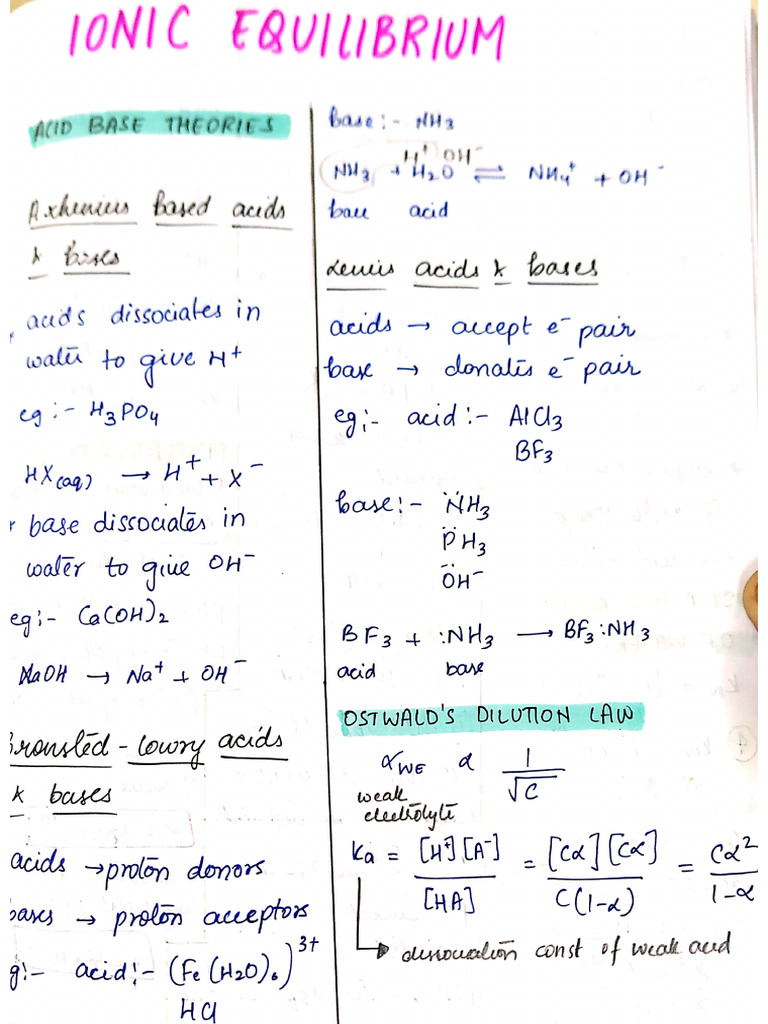 IONIC EQUILIBRIUM
ACID BASE THEORIES
Arhenius Based acids
& bases
acids dissociates in
water to give H⁺
eg :- H₃PO₄
HX(aq) → H⁺ + X⁻
base dissociates in
water to give OH⁻
eg :- Ca(OH)₂
NaOH → Na⁺ + OH⁻
Bronsted - lowry acids
& bases
acids → proton donors
bases → proton acceptors
g :- acid :- (Fe(H₂O)₆)³⁺
HCl
base :- NH₃
H⁺ OH⁻
NH₃ + H₂O ⇌ NH₄⁺ + OH⁻
base acid
Lewis acids & bases
acids → accept e⁻ pair
base → donates e⁻ pair
eg :- acid :- AlCl₃
BF₃
base :- N̈H₃
P̈H₃
ÖH⁻
BF₃ + :NH₃ → BF₃:NH₃
acid base
OSTWALD'S DILUTION LAW
α_WE α 1/√C
weak
electrolyte
Ka = [H⁺][A⁻]/[HA] = [Cα][Cα]/C(1-α) = Cα²/1-α
dissociation const of weak acid